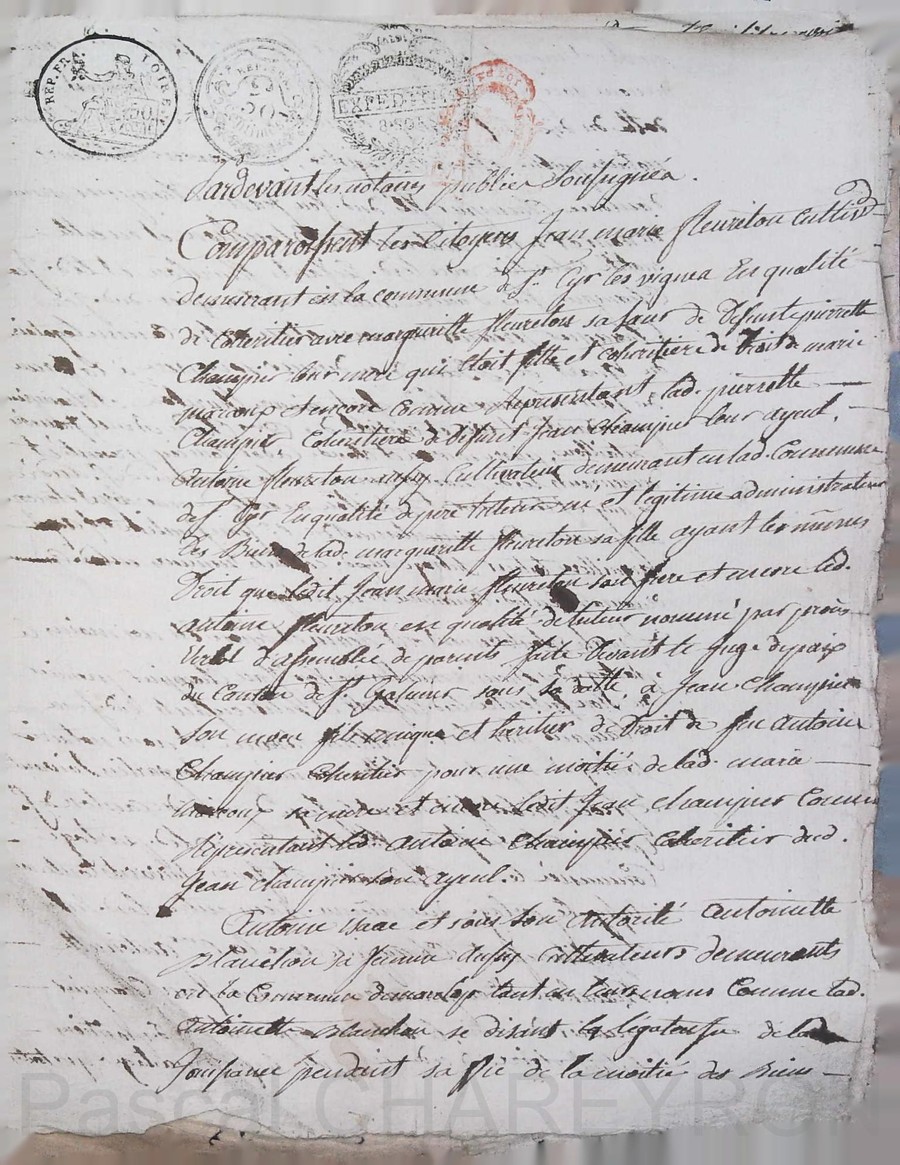 REP. FRA. LOIRE
EXPEDITION
Pardevant les notaires publics Soussignés.
Comparoissent les Citoyens Jean marie fleureton Cultiv.
demeurant en la commune de St. Cyr les vignes En qualité
de Coheritier avec margueritte fleureton sa sœur de Deffunte pierrette
Champier leur mere qui Etoit fille et coheritiere de Droit de marie
et encore Comme Représentant lad. pierrette
Champier, Coheritiere de Deffunt Jean Champier leur ayeul,
Antoine fleureton aussy Cultivateur demeurant en lad. Commune
de St Cyr En qualité de pere tuteur né et légitime administrateur
des Biens de lad. margueritte fleureton sa fille ayant les mêmes
Droit que ledit Jean marie fleureton son frere et encore led.
antoine fleureton en qualité de tuteur nommé par procès
Verbal d'assemblée de parents faite Devant le Juge de paix
du Canton de St Galmier sous sa datte, à Jean Champier
Son neveu fils unique et héritier de Droit de feu Antoine
Champier Coheritier pour une moitié de lad. marie
sa mere et encore ledit Jean Champier Comme
Représentant led. Antoine Champier Coheritier dud.
Jean Champier son ayeul.
Antoine et sous son Autorité Antoinette
planchon sa femme aussy Cultivateurs demeurants
en la Commune de tant en leurs noms Comme lad.
Antoinette planchon se disant la légateuse de la
Jouissance pendant sa Vie de la moitié des Biens
Pascal CHAREYRON